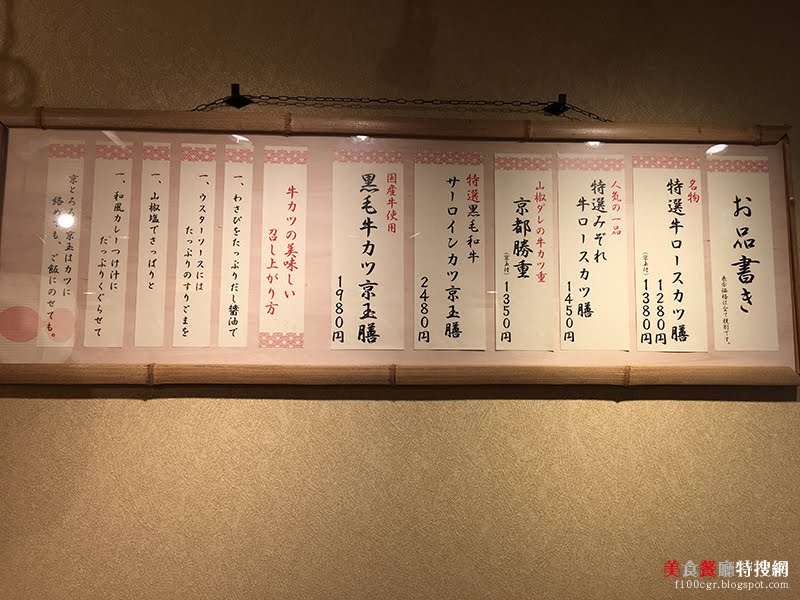 お品書き
表示価格は全て税別です。
名物
特選牛ロースカツ膳
1280円
(京玉付) 1380円
人気の一品
特選みぞれ
牛ロースカツ膳
1450円
山椒ダレの牛カツ重
京都勝重
(京玉付) 1350円
特選黒毛和牛
サーロインカツ京玉膳
2480円
国産牛使用
黒毛牛カツ京玉膳
1980円
牛カツの美味しい
召し上がり方
一、わさびをたっぷりだし醤油で
一、ウスターソースには
たっぷりのすりごまを
一、山椒塩でさっぱりと
一、和風カレーつけ汁に
たっぷりくぐらせて
京とろろ、京玉はカツに
絡めても、ご飯にのせても。
美食餐廳特搜網
f100cgr.blogspot.com